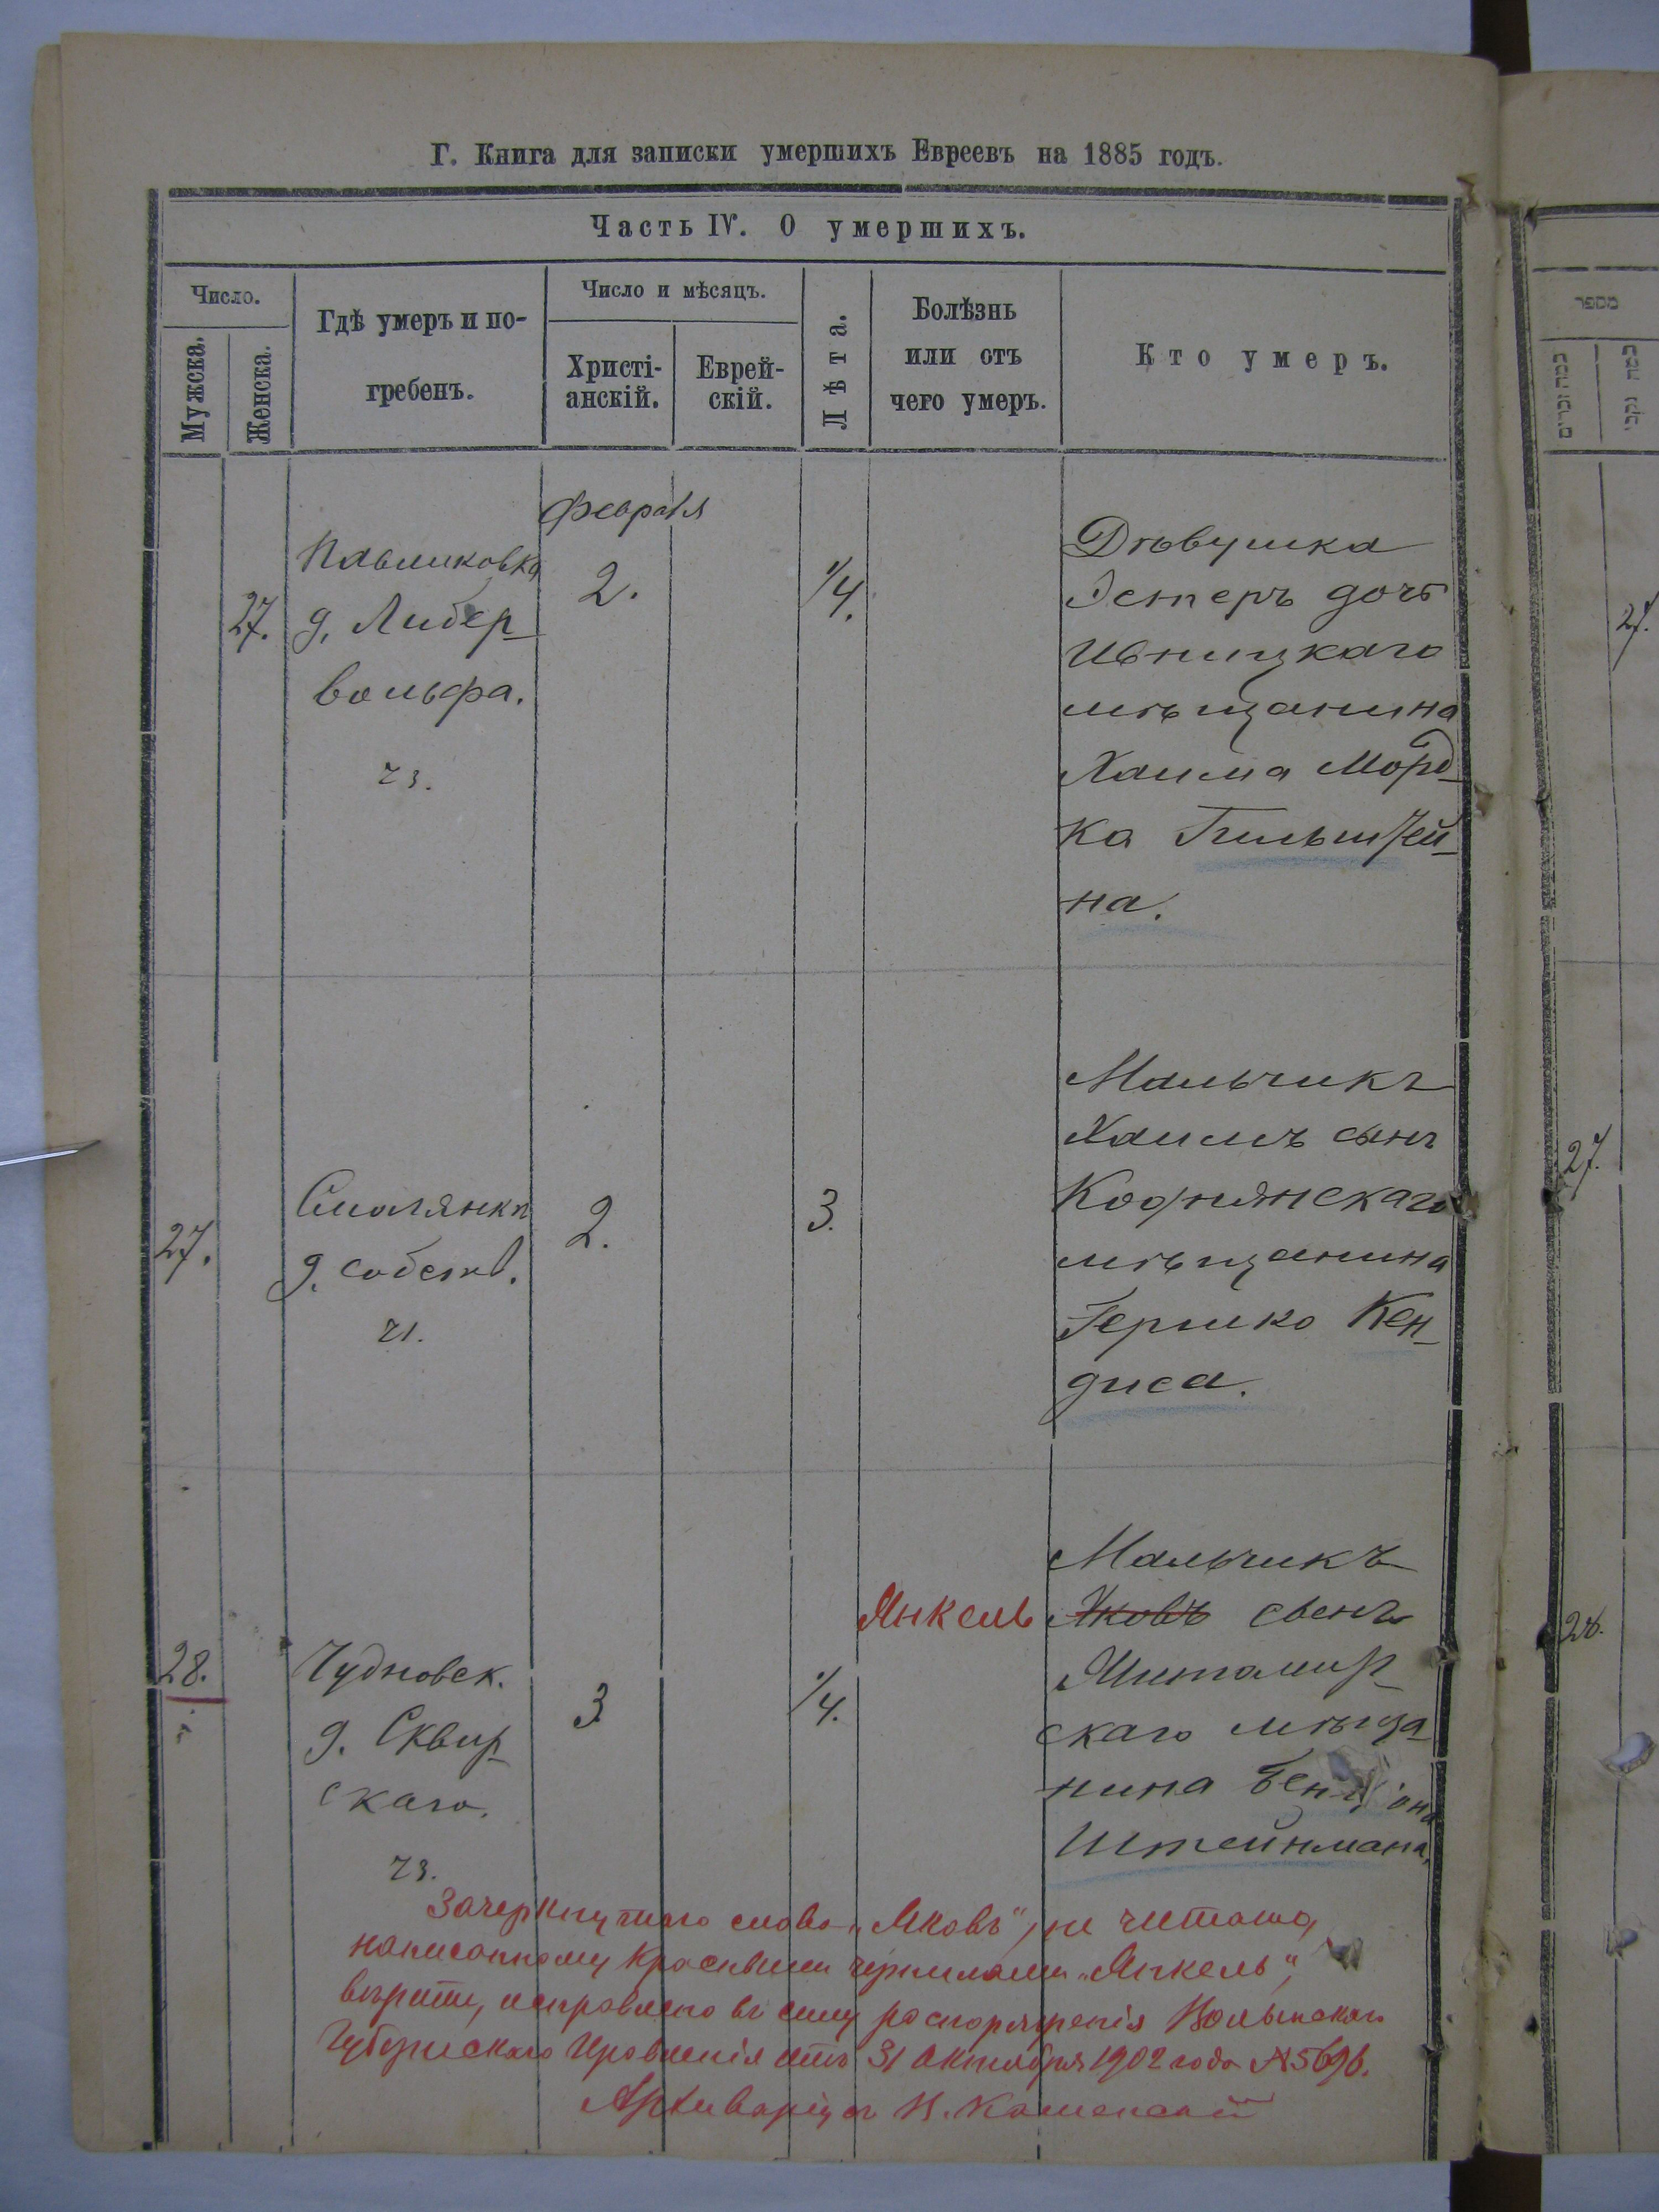 Г. Книга для записки умершихъ Евреевъ на 1885 годъ.
Часть IV. О умершихъ.
Число.
Мужска.
Женска.
Гдѣ умеръ и по-
гребенъ.
Число и мѣсяцъ.
Христі-
анскій.
Еврей-
скій.
Лѣта.
Болѣзнь
или отъ
чего умеръ.
Кто умеръ.
מספר
февраля
27.
Павликовка
д. Либер-
вольфа.
ч3.
2.
1/4.
Дѣвушка
Эстеръ дочь
Ивницкаго
мѣщанина
Хаима Морд-
ка Гильштей-
на.
27.
27.
Смолянка
д. собств.
ч1.
2.
3.
Мальчикъ
Хаимъ сынъ
Коднянскаго
мѣщанина
Гершко Кен-
диса.
27.
28.
Чудновск.
д. Сквир-
скаго.
ч3.
3
1/4.
Янкель
Мальчикъ
Яковъ сынъ
Житомир-
скаго мѣща-
нина Бенціона
Штейнмана,
28.
Зачеркнутаго слова „Яковъ", не читать,
написанному красными чернилами „Янкель",
вѣрить, исправлено въ силу распоряженія Волынскаго
Губернскаго Правленія отъ 31 Октября 1902 года №5696.
Архиваріусъ Н. Каменскій